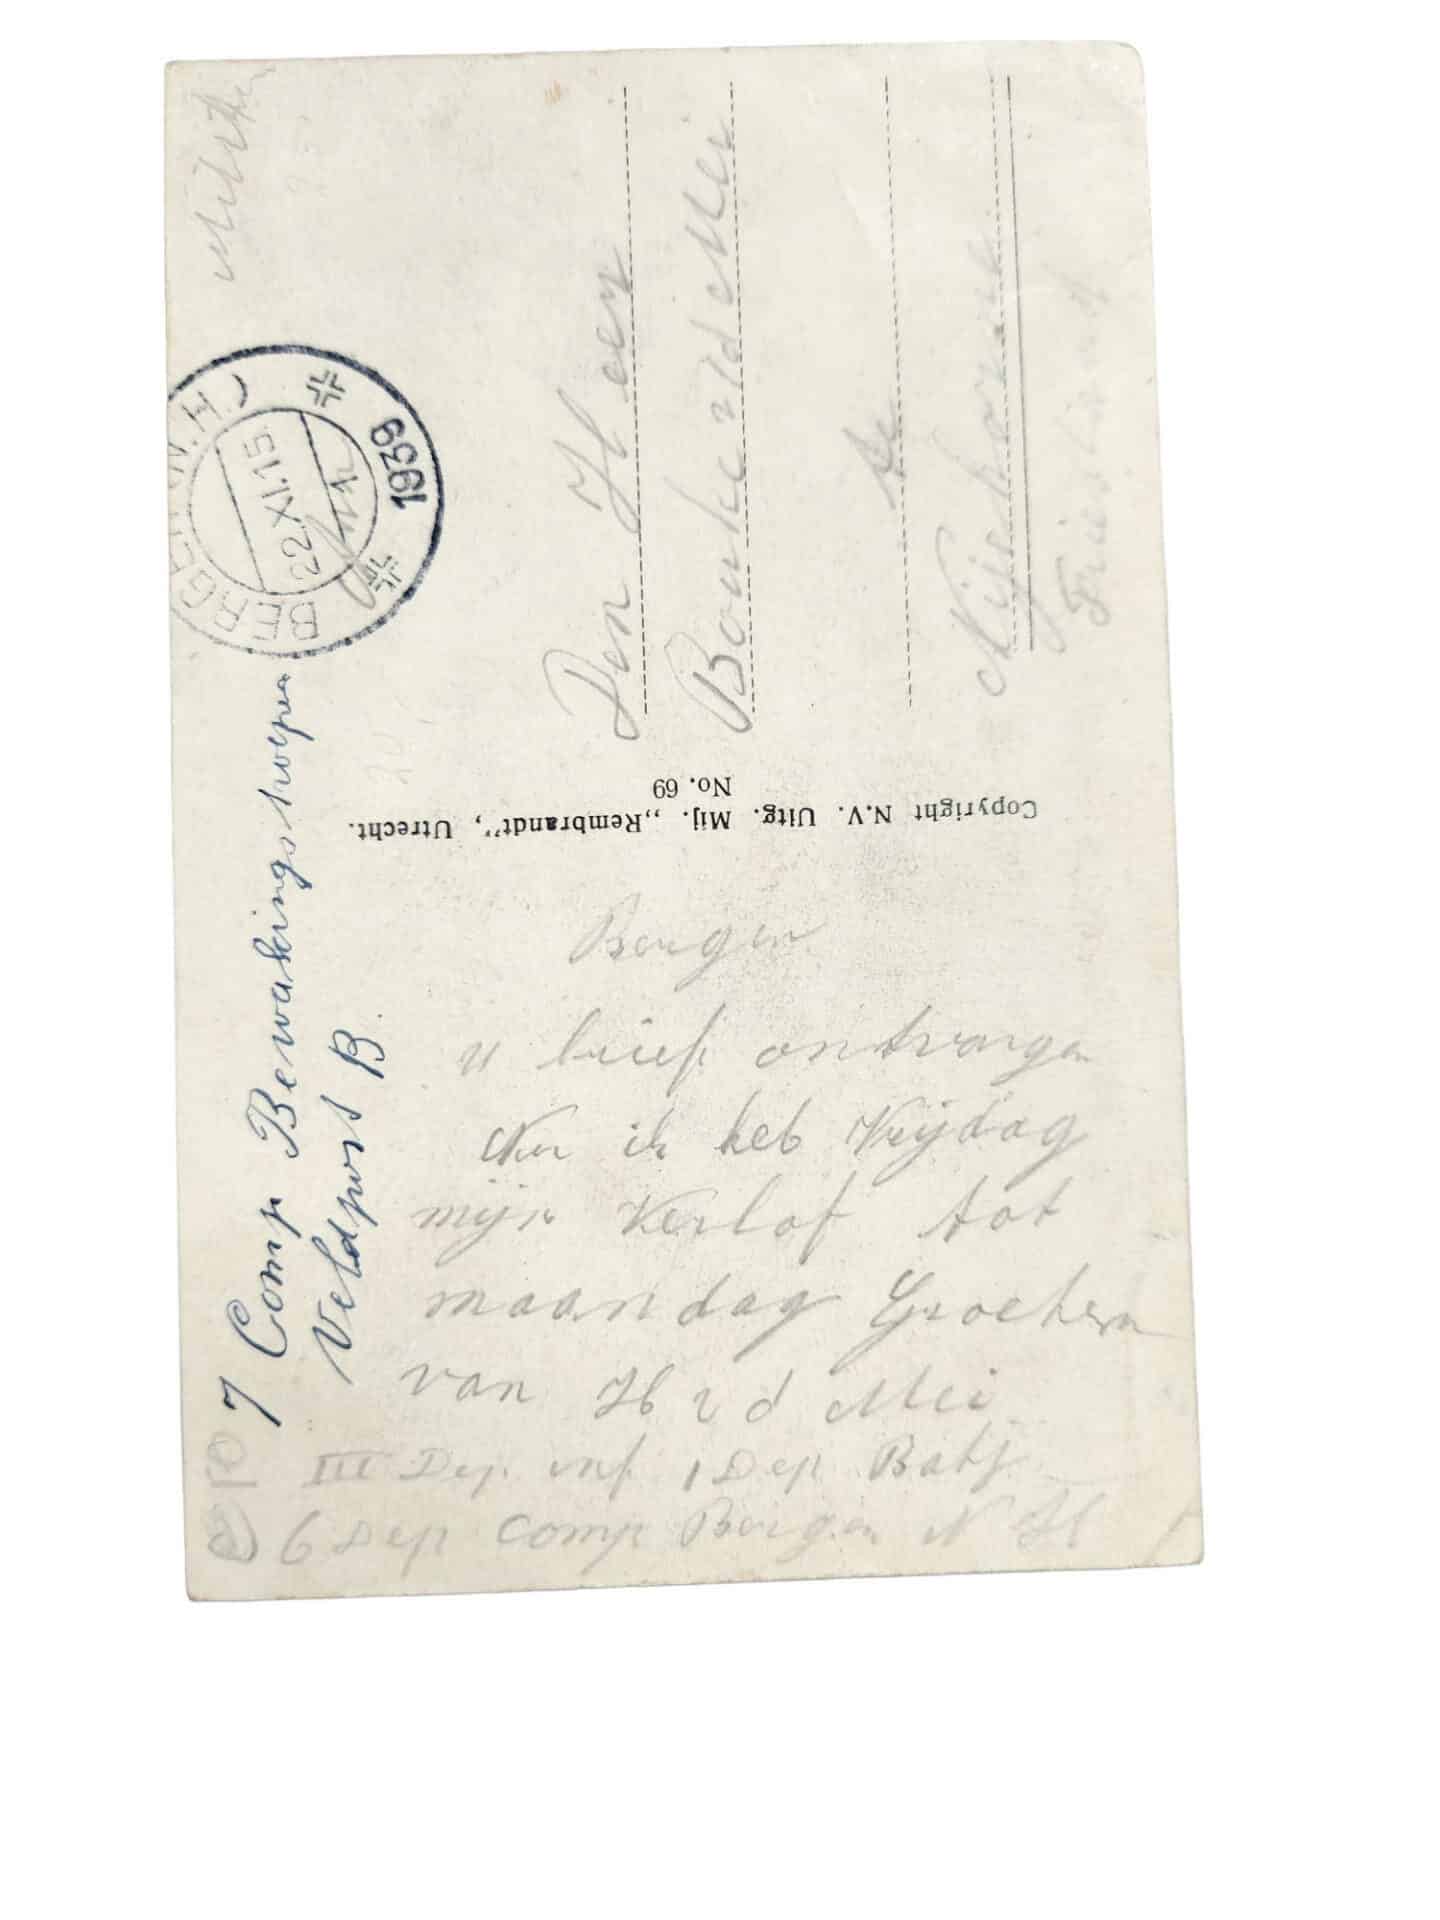 Bergen
u brief ontvangen
Nu ik heb Vrijdag
mijn Verlof tot
maandag Groeten
van H v d Mei
III Dep inf 1 Dep Batj
6 Dep Comp Bergen N H
7 Comp Bewakingstroepen
Veldpost B
Copyright N.V. Uitg. Mij. „Rembrandt", Utrecht.
No. 69
BERGEN (N.H.)
22.XI.15
1939
Den Heer
Bouke v/d Mei
te
Nijehorne
Friesland